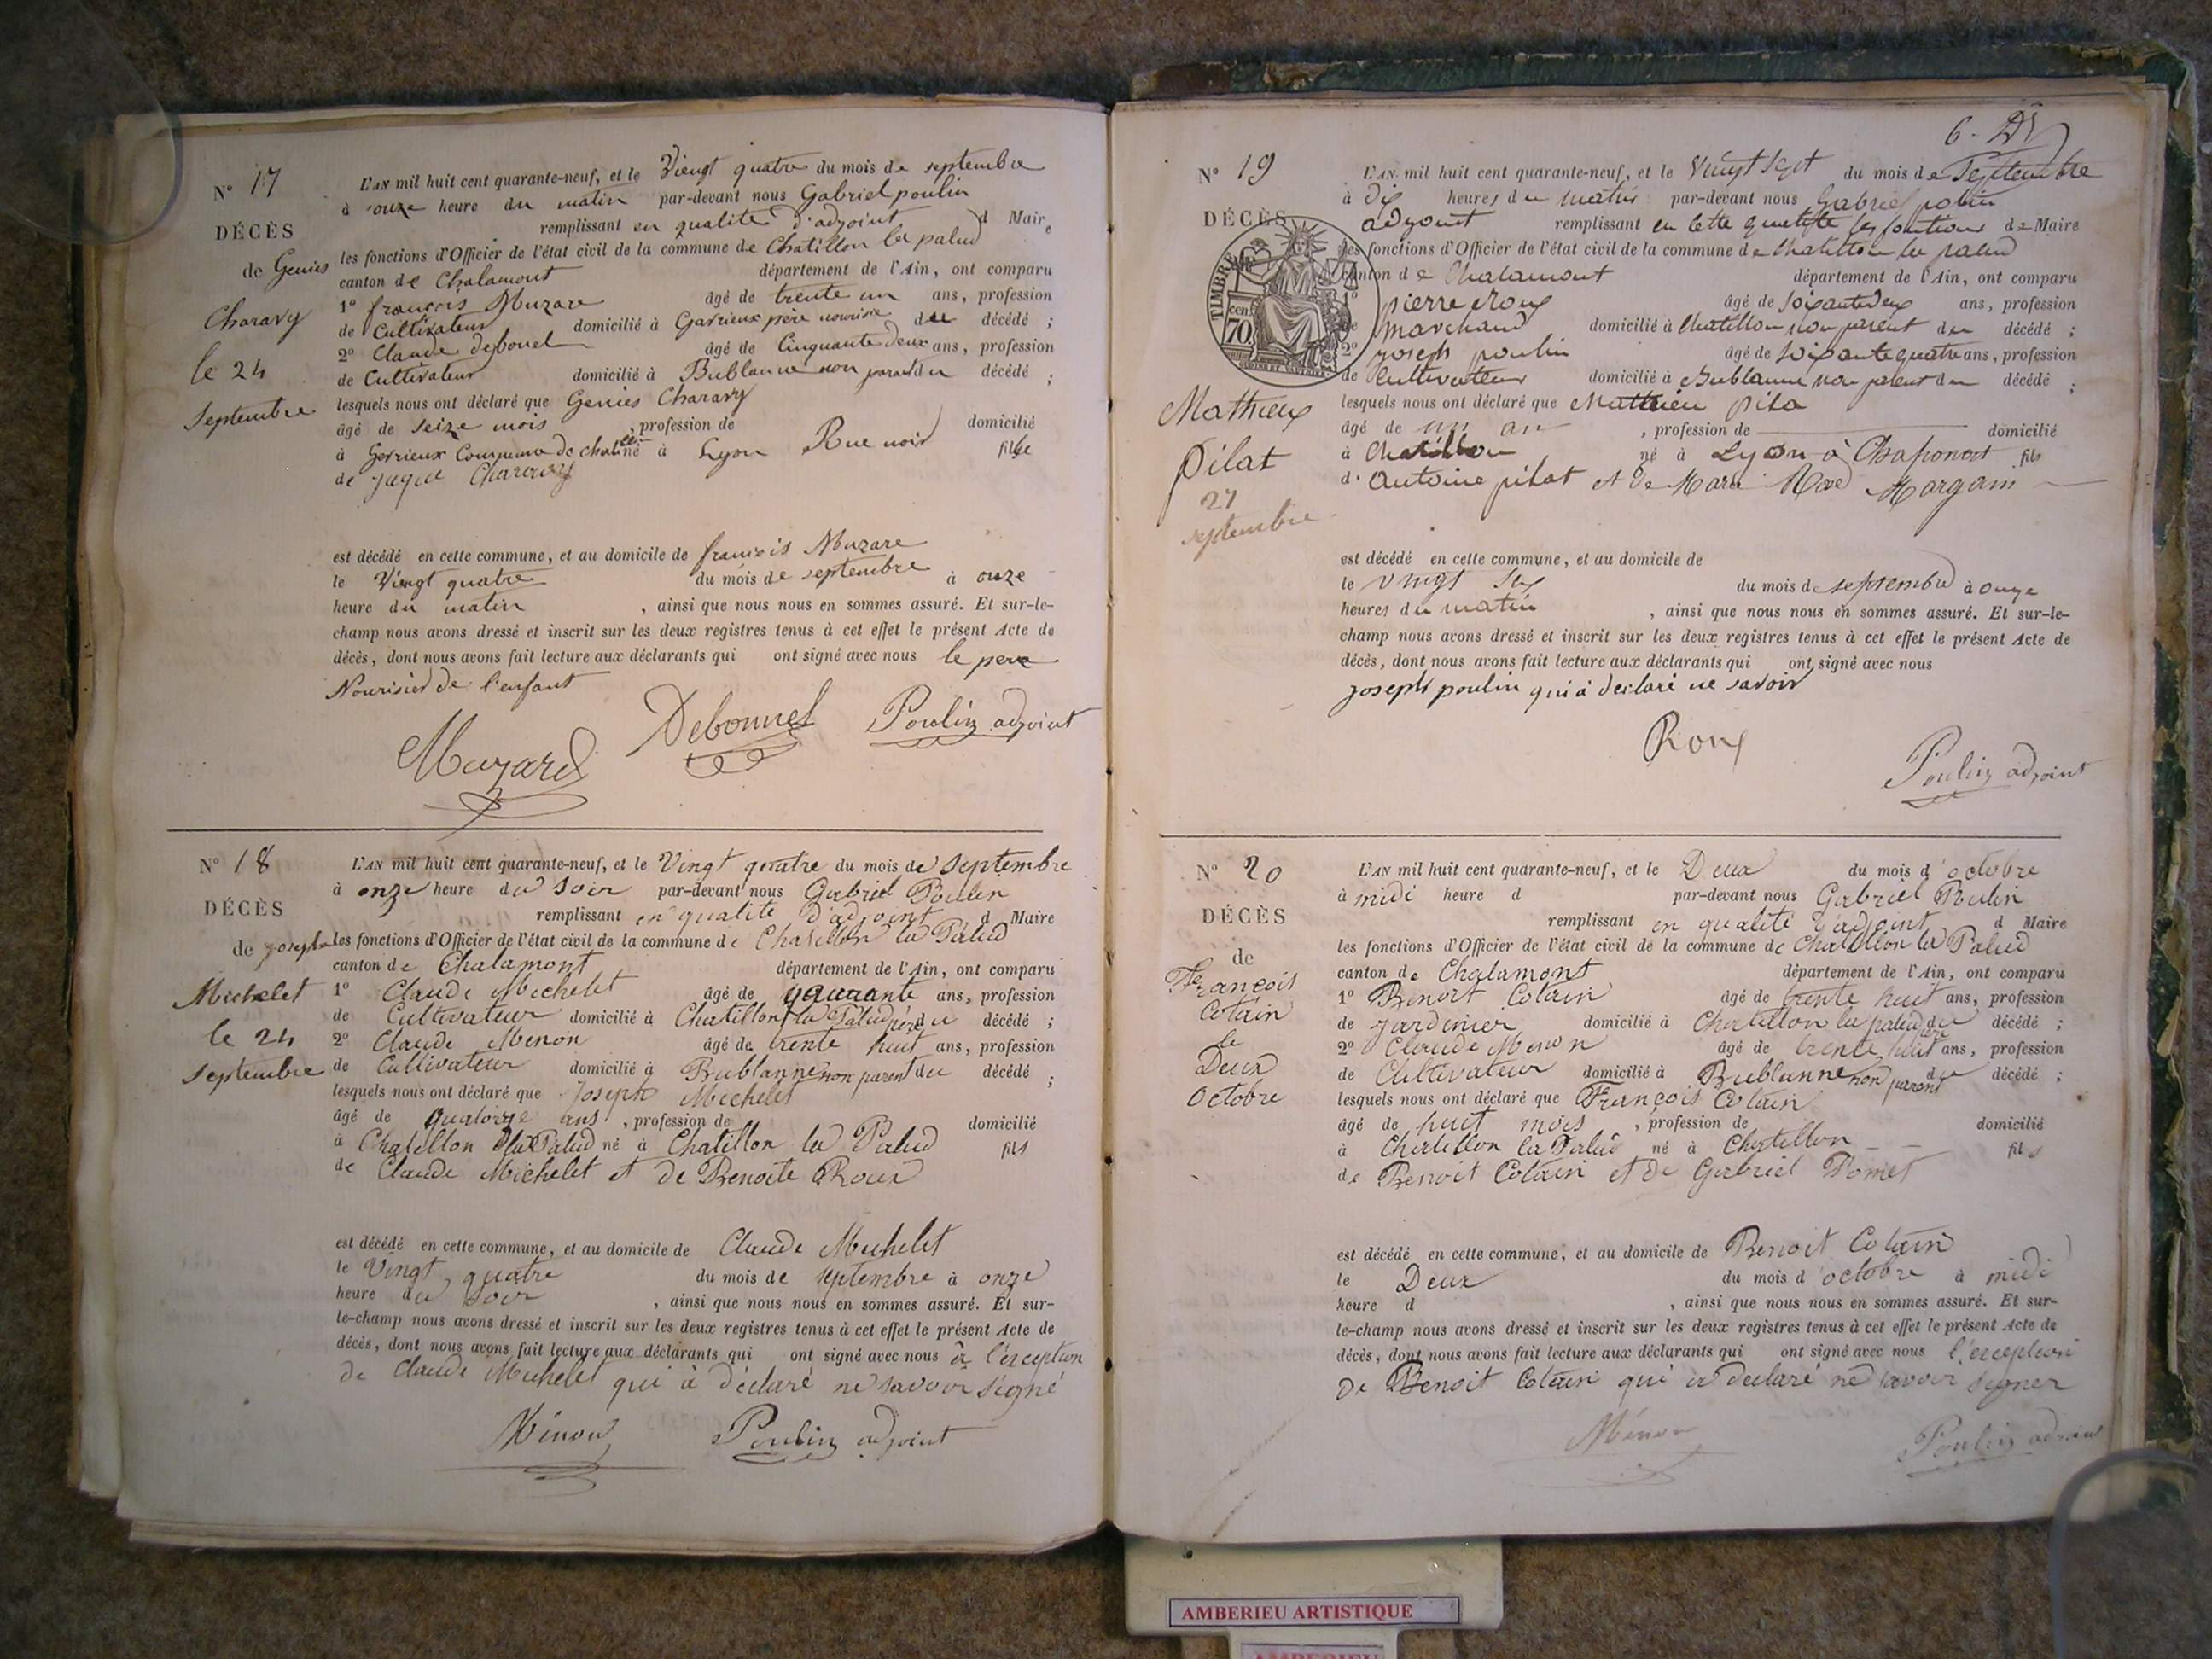 N° 17
DÉCÈS
de Genies
Charavy
le 24
Septembre
L'AN mil huit cent quarante-neuf, et le Vingt quatre du mois de septembre
à onze heure du matin par-devant nous Gabriel poulin
remplissant en qualité d'adjoint d Maire
les fonctions d'Officier de l'état civil de la commune de Chatillon la palud
canton de Chalamont département de l'Ain, ont comparu
1° françois Muzare âgé de trente un ans, profession
de Cultivateur domicilié à Gevrieux père nourisie du décédé ;
2° Claude debonel âgé de Cinquante deux ans, profession
de Cultivateur domicilié à Bublanne non parent du décédé ;
lesquels nous ont déclaré que Genies Charavy
âgé de seize mois , profession de domicilié
à Gevrieux Commune de chatillon né à Lyon Rue noir fils
de jaque Charavy
est décédé en cette commune, et au domicile de françois Muzare
le Vingt quatre du mois de septembre à onze
heure du matin , ainsi que nous nous en sommes assuré. Et sur-le-
champ nous avons dressé et inscrit sur les deux registres tenus à cet effet le présent Acte de
décès, dont nous avons fait lecture aux déclarants qui ont signé avec nous le pere
Nourisier de l'enfant
Muzard Debonnel Poulin adjoint
N° 18
DÉCÈS
de joseph
Michelet
le 24
Septembre
L'AN mil huit cent quarante-neuf, et le Vingt quatre du mois de Septembre
à onze heure du Soir par-devant nous Gabriel Poulin
remplissant en qualité d'adjoint d Maire
les fonctions d'Officier de l'état civil de la commune de Chatillon la Palud
canton de Chalamont département de l'Ain, ont comparu
1° Claude Michelet âgé de quarante ans, profession
de Cultivateur domicilié à Chatillon la Palud père du décédé ;
2° Claude Menon âgé de trente huit ans, profession
de Cultivateur domicilié à Bublanne non parent du décédé ;
lesquels nous ont déclaré que Joseph Michelet
âgé de quatorze ans , profession de domicilié
à Chatillon la Palud né à Chatillon la Palud fils
de Claude Michelet et de Benoite Roux
est décédé en cette commune, et au domicile de Claude Michelet
le Vingt quatre du mois de septembre à onze
heure du Soir , ainsi que nous nous en sommes assuré. Et sur-
le-champ nous avons dressé et inscrit sur les deux registres tenus à cet effet le présent Acte de
décès, dont nous avons fait lecture aux déclarants qui ont signé avec nous à l'exception
de Claude Michelet qui à déclaré ne savoir signé
Ménon Poulin adjoint
6.
N° 19
DÉCÈS
TIMBRE
cen
70
Mathieu
Pilat
27
septembre
L'AN mil huit cent quarante-neuf, et le Vingt Sept du mois de Septembre
à dix heures du matin par-devant nous Gabriel polin
adjoint remplissant en cette qualité les fontions de Maire
les fonctions d'Officier de l'état civil de la commune de Chatillon la palud
canton de Chalamont département de l'Ain, ont comparu
1° pierre Roux âgé de Soixante deux ans, profession
de marchand domicilié à Chatillon non parent du décédé ;
2° joseph poulin âgé de Soixante quatre ans, profession
de Cultivateur domicilié à Bublanne non parent du décédé ;
lesquels nous ont déclaré que Mathieu pila
âgé de un an , profession de domicilié
à Chatillon né à Lyon à Chaponost fils
d' Antoine pilat et de Marie Margain
est décédé en cette commune, et au domicile de
le vingt Six du mois de septembre à onze
heures du matin , ainsi que nous nous en sommes assuré. Et sur-le-
champ nous avons dressé et inscrit sur les deux registres tenus à cet effet le présent Acte de
décès, dont nous avons fait lecture aux déclarants qui ont signé avec nous
joseph poulin qui à déclaré ne savoir
Roux
Poulin adjoint
N° 20
DÉCÈS
de
François
Cotain
le
Deux
Octobre
L'AN mil huit cent quarante-neuf, et le Deux du mois d'octobre
à midi heure d par-devant nous Gabriel Poulin
remplissant en qualité d'adjoint d Maire
les fonctions d'Officier de l'état civil de la commune de Chatillon la Palud
canton de Chalamont département de l'Ain, ont comparu
1° Benoit Cotain âgé de trente huit ans, profession
de jardinier domicilié à Chatillon la palud père du décédé ;
2° Claude Menon âgé de trente huit ans, profession
de Cultivateur domicilié à Bublanne non parent du décédé ;
lesquels nous ont déclaré que François Cotain
âgé de huit mois , profession de domicilié
à Chatillon la Palud né à Chatillon fils
de Benoit Cotain et de Gabriel Pomet
est décédé en cette commune, et au domicile de Benoit Cotain
le Deux du mois d'octobre à midi
heure d , ainsi que nous nous en sommes assuré. Et sur-
le-champ nous avons dressé et inscrit sur les deux registres tenus à cet effet le présent Acte de
décès, dont nous avons fait lecture aux déclarants qui ont signé avec nous l'exception
De Benoit Cotain qui à déclaré ne savoir signer
Ménon Poulin adjoint
AMBERIEU ARTISTIQUE
AMBERIEU